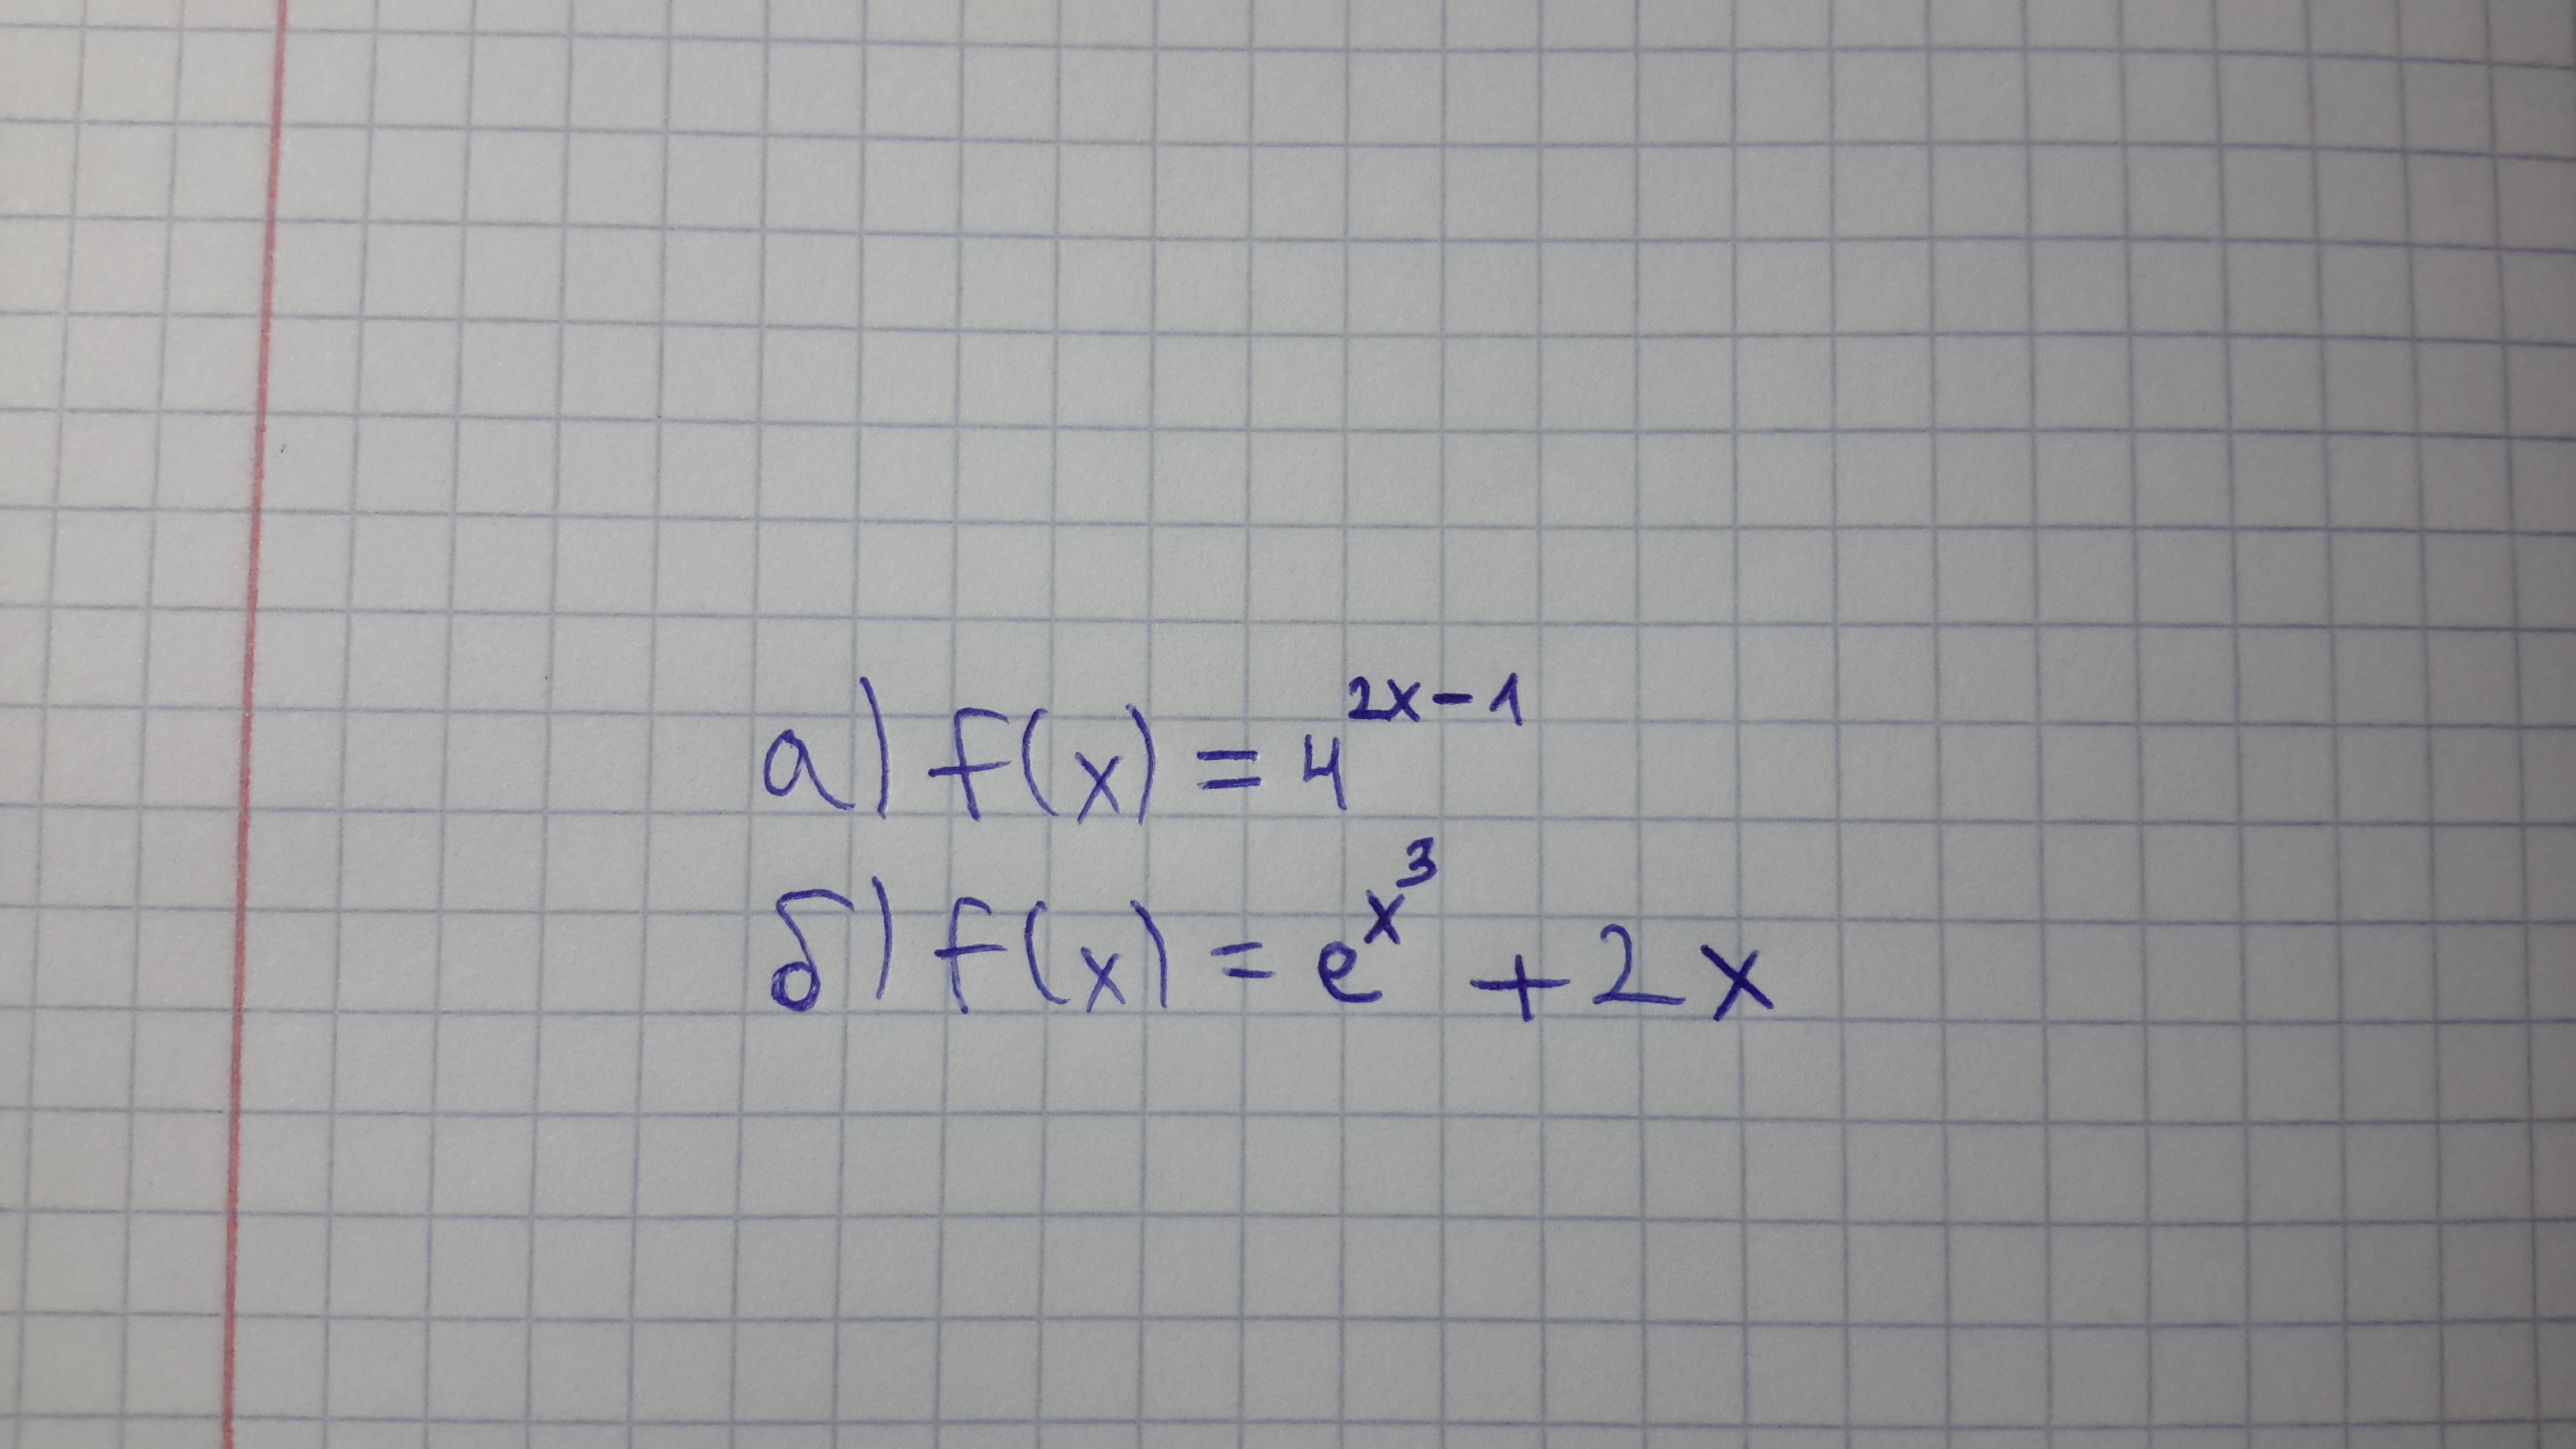 а) f(x) = 4^{2x-1}
б) f(x) = e^{x^3} + 2x